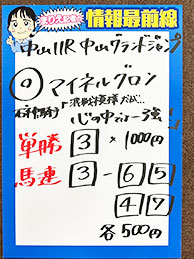 まりえ記者
情報最前線
中山11R 中山グランドジャンプ
◎ マイネルグロン
石神騎手
混戦模様だが…
心の中で…強
単勝 3 × 1000円
馬連 3 - 6 5
4 7
各500円